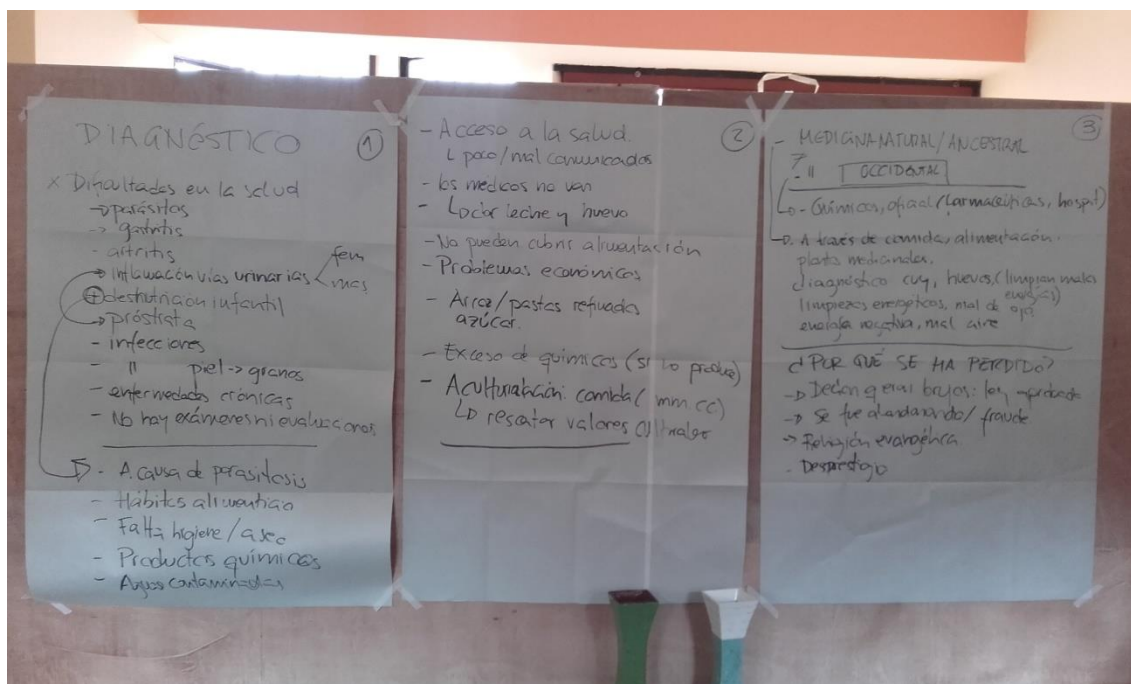 DIAGNÓSTICO ①
x Dificultades en la salud
→ parásitos
→ gastritis
- artritis
→ Inflamación vías urinarias < fem
mas
⊕ desnutrición infantil
→ próstata
- infecciones
- " piel → granos
- enfermedades crónicas
- No hay exámenes ni evaluaciones
- A causa de parasitosis
- Hábitos alimenticio
- Falta higiene / aseo
- Productos químicos
- Aguas contaminadas
②
- Acceso a la salud.
↳ poco/mal comunicados
- los medicos no van
- Lo dar leche y huevo
- No pueden cubrir alimentación
- Problemas económicos
- Arroz/pastas refinadas
azúcar.
- Exceso de químicos (si lo produce)
- Aculturalización: comida ( mm.cc)
↳ rescatar valores culturales
③
- MEDICINA NATURAL/ANCESTRAL
- " OCCIDENTAL
- Químicos, oficial (farmacéuticas, hospit)
A través de comida, alimentación.
plantas medicinales,
diagnóstico cuy, huevos, (limpian malas
energías)
limpiezas energéticas, mal de ojo
energía negativa, mal aire
¿POR QUÉ SE HA PERDIDO?
→ Decían q eran brujos: ley
→ Se fue abandonando/ fraude
→ Religión evangélica
- Desprestigio